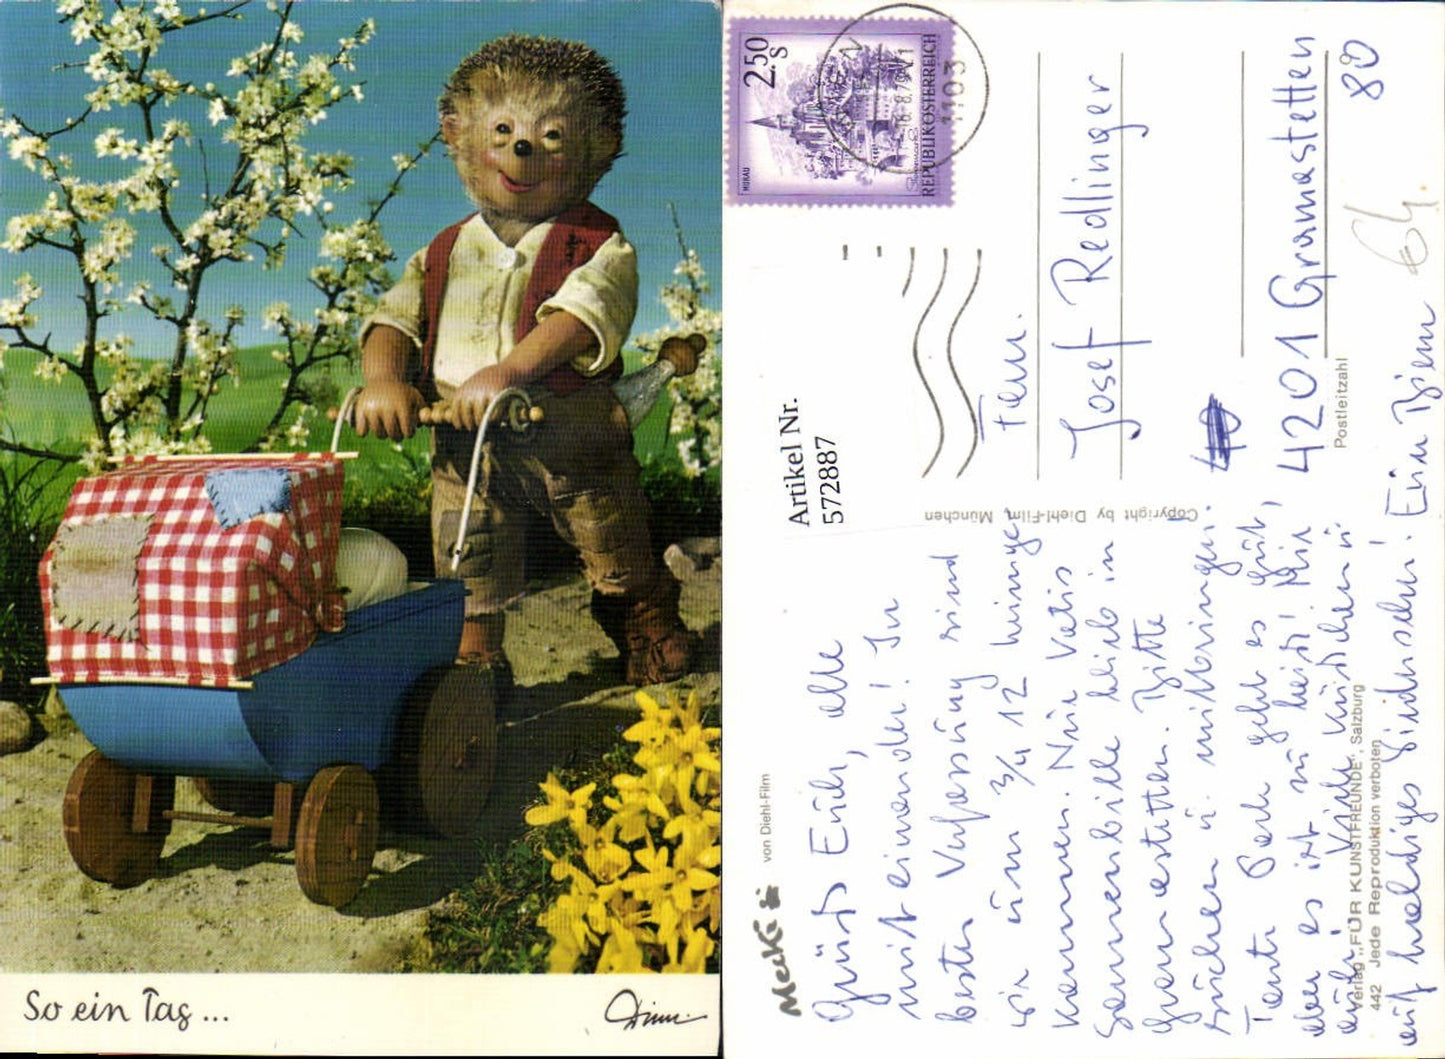 So ein Tag...
Diehl
2.50 S
REPUBLIK ÖSTERREICH
MURAU
WIEN
16.8.79
1103
Artikel Nr.
572887
Mecki
von Diehl-Film
Copyright by Diehl-Film, München
Verlag „FÜR KUNSTFREUNDE", Salzburg
442 Jede Reproduktion verboten
Grüß Euch, alle
miteinander! In
bester Verfassung sind
wir um 3/4 12 hinunge
kommen. Nur Vatis
Sonnenbrille blieb in
Gramastetten. Bitte
suchen u. mitbringen.
Tante geht es gut,
aber es ist zu heiß! Mir
auch! Viele Küßchen u
auf baldiges Wiedersehen! Eure
Fam.
Josef Redlinger
4201 Gramastetten
Postleitzahl
80